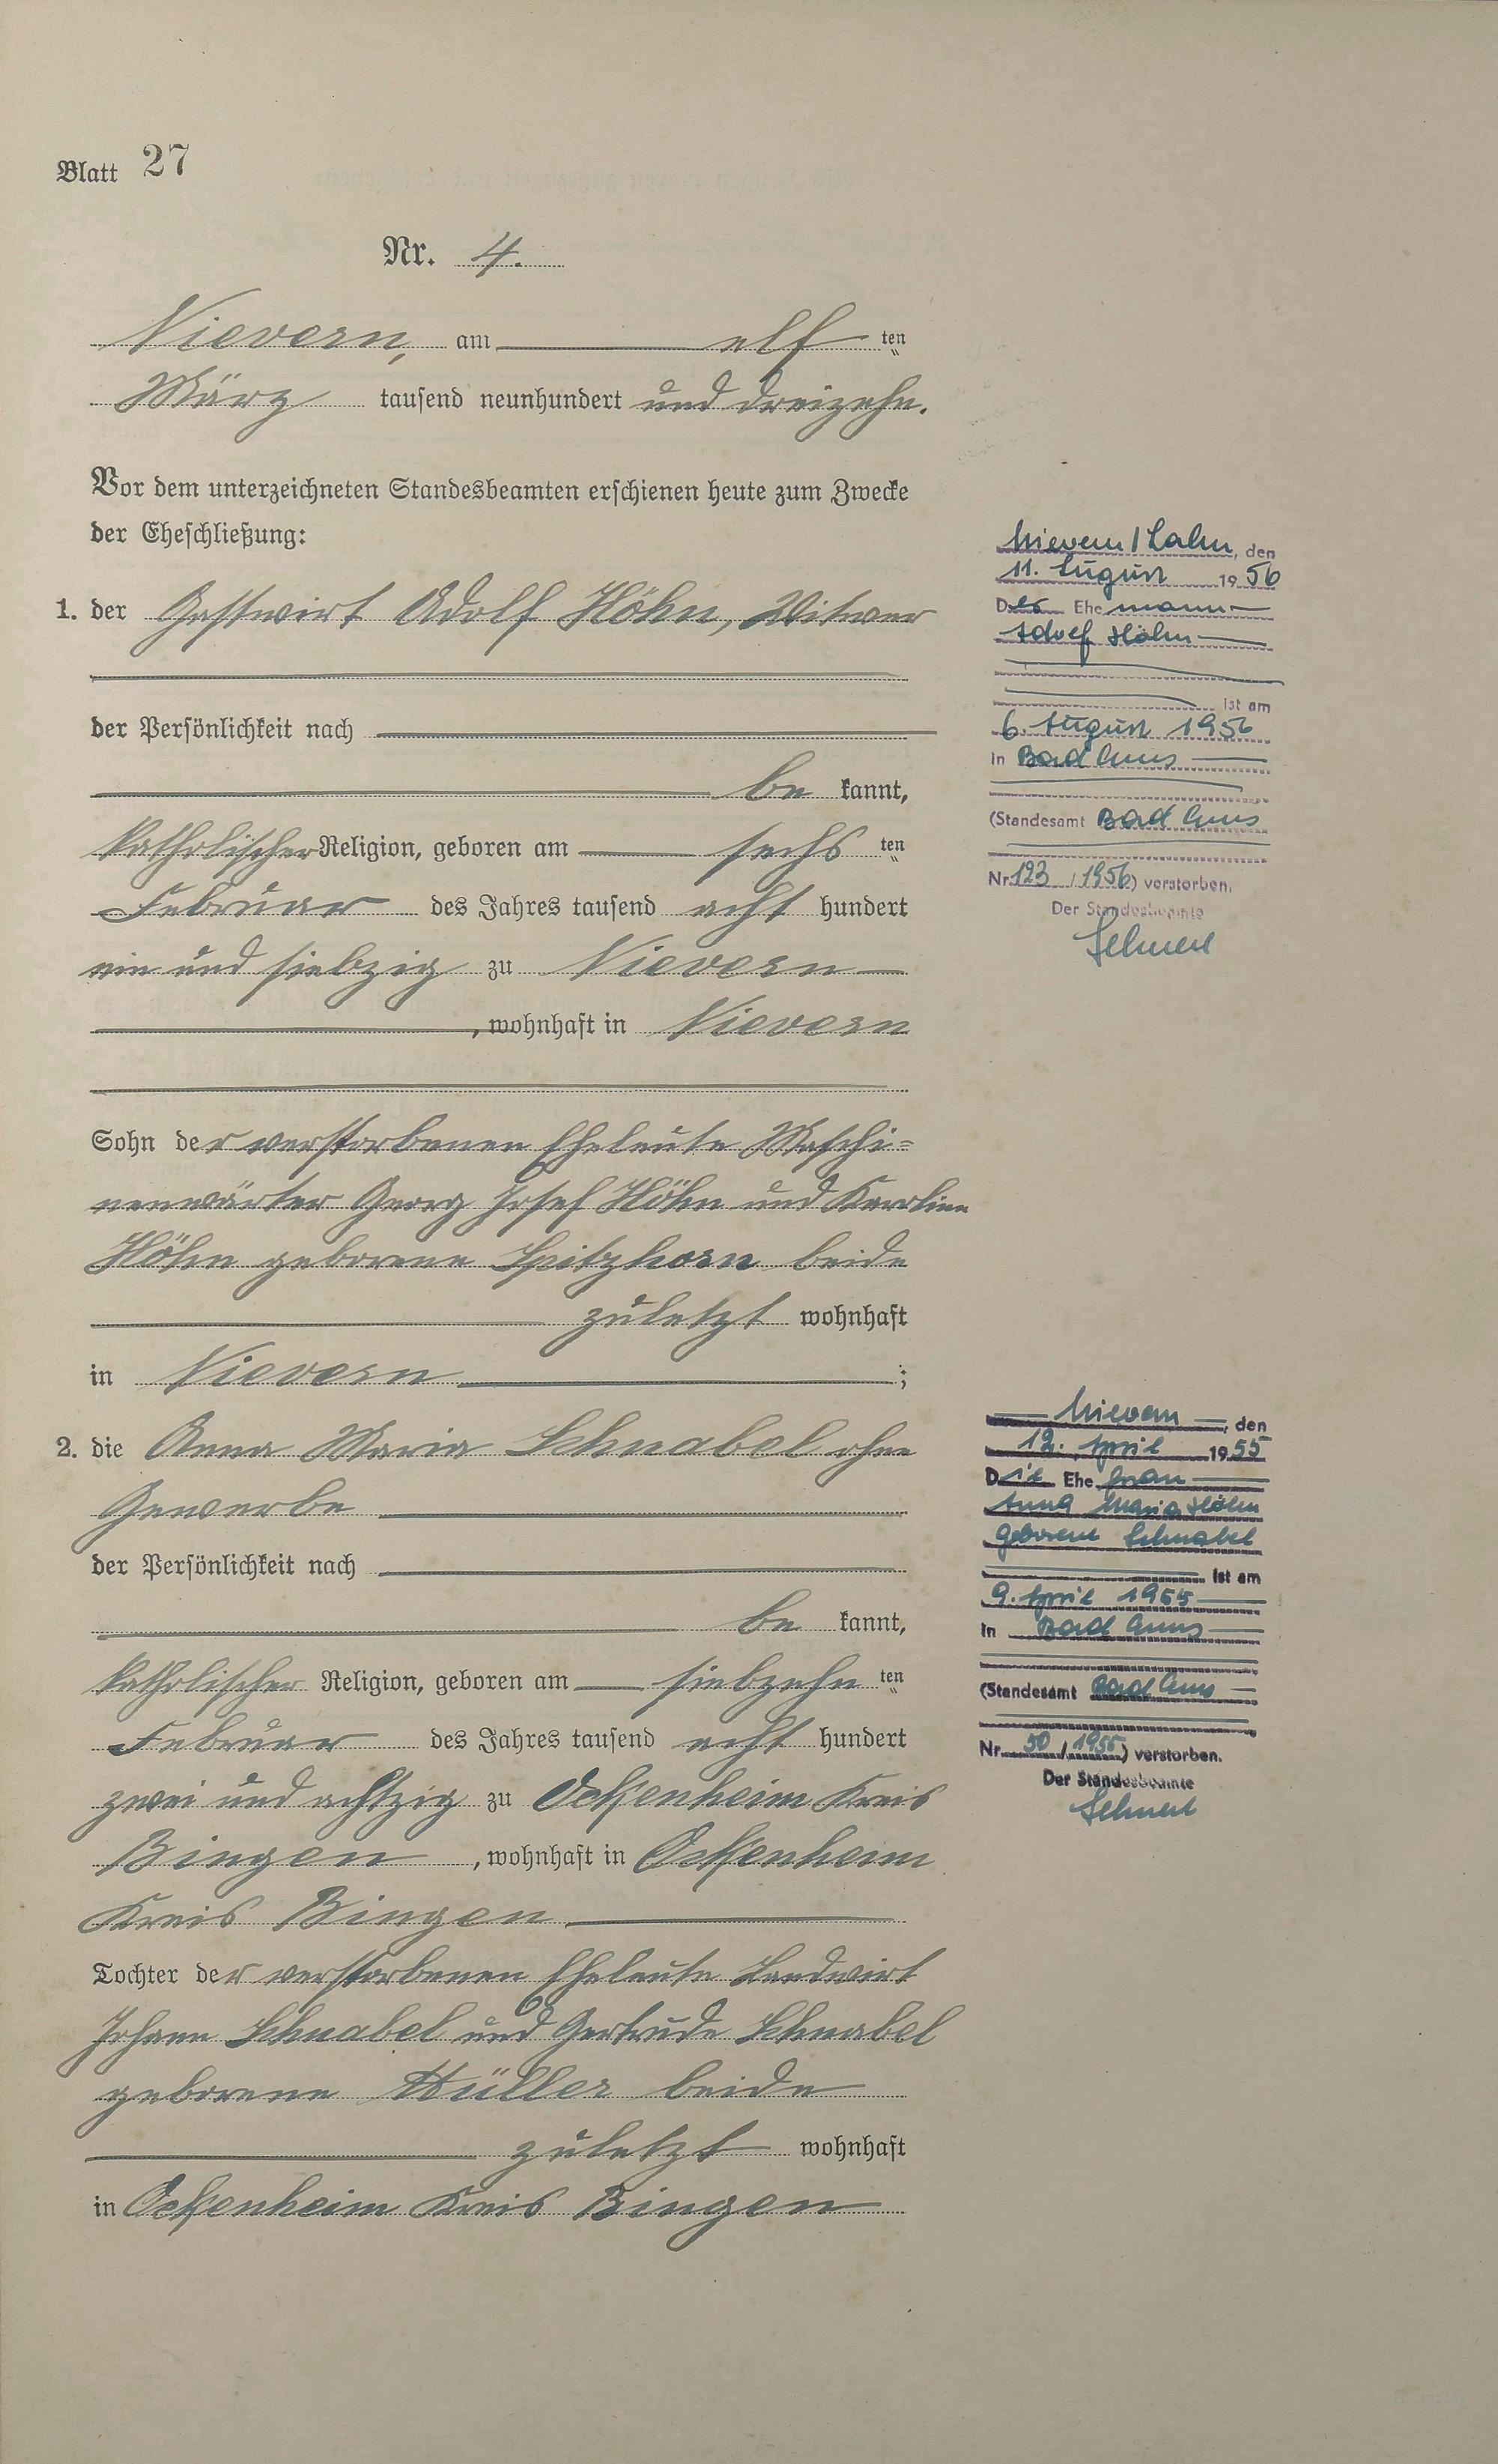 Blatt 27
Nr. 4.
Nievern, am elf ten
März tausend neunhundert und dreizehn.
Vor dem unterzeichneten Standesbeamten erschienen heute zum Zwecke
der Eheschließung:
1. der Gastwirt Adolf Höhn, Witwer
der Persönlichkeit nach
be kannt,
katholischer Religion, geboren am sechs ten
Februar des Jahres tausend acht hundert
ein und siebzig zu Nievern
, wohnhaft in Nievern
Sohn der verstorbenen Eheleute Maschi=
nenwärter Georg Josef Höhn und Karoline
Höhn geborene Spitzhorn beide
zuletzt wohnhaft
in Nievern ;
2. die Anna Maria Schnabel ohne
Gewerbe
der Persönlichkeit nach
be kannt,
katholischer Religion, geboren am siebzehn ten
Februar des Jahres tausend acht hundert
zwei und achtzig zu Ockenheim Kreis
Bingen , wohnhaft in Ockenheim
Kreis Bingen
Tochter der verstorbenen Eheleute Landwirt
Johann Schnabel und Gertrude Schnabel
geborene Hüller beide
zuletzt wohnhaft
in Ockenheim Kreis Bingen
Nievern/Lahn, den
11. August 1956
Der Ehemann
Adolf Höhn
ist am
6. August 1956
in Bad Ems
(Standesamt Bad Ems
Nr. 123 / 1956) verstorben.
Der Standesbeamte
Nievern, den
12. April 1955
Die Ehefrau
Anna Maria Höhn
geborene Schnabel
ist am
9. April 1955
in Bad Ems
(Standesamt Bad Ems
Nr. 50 / 1955) verstorben.
Der Standesbeamte